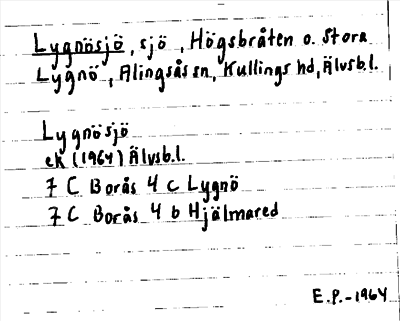 Lygnösjö, sjö, Högsbråten o. Stora
Lygnö, Alingsås sn, Kullings hd, Älvsb.l.
Lygnösjö
ek (1964) Älvsb.l.
7 C Borås 4 c Lygnö
7 C Borås 4 b Hjälmared
E.P.-1964